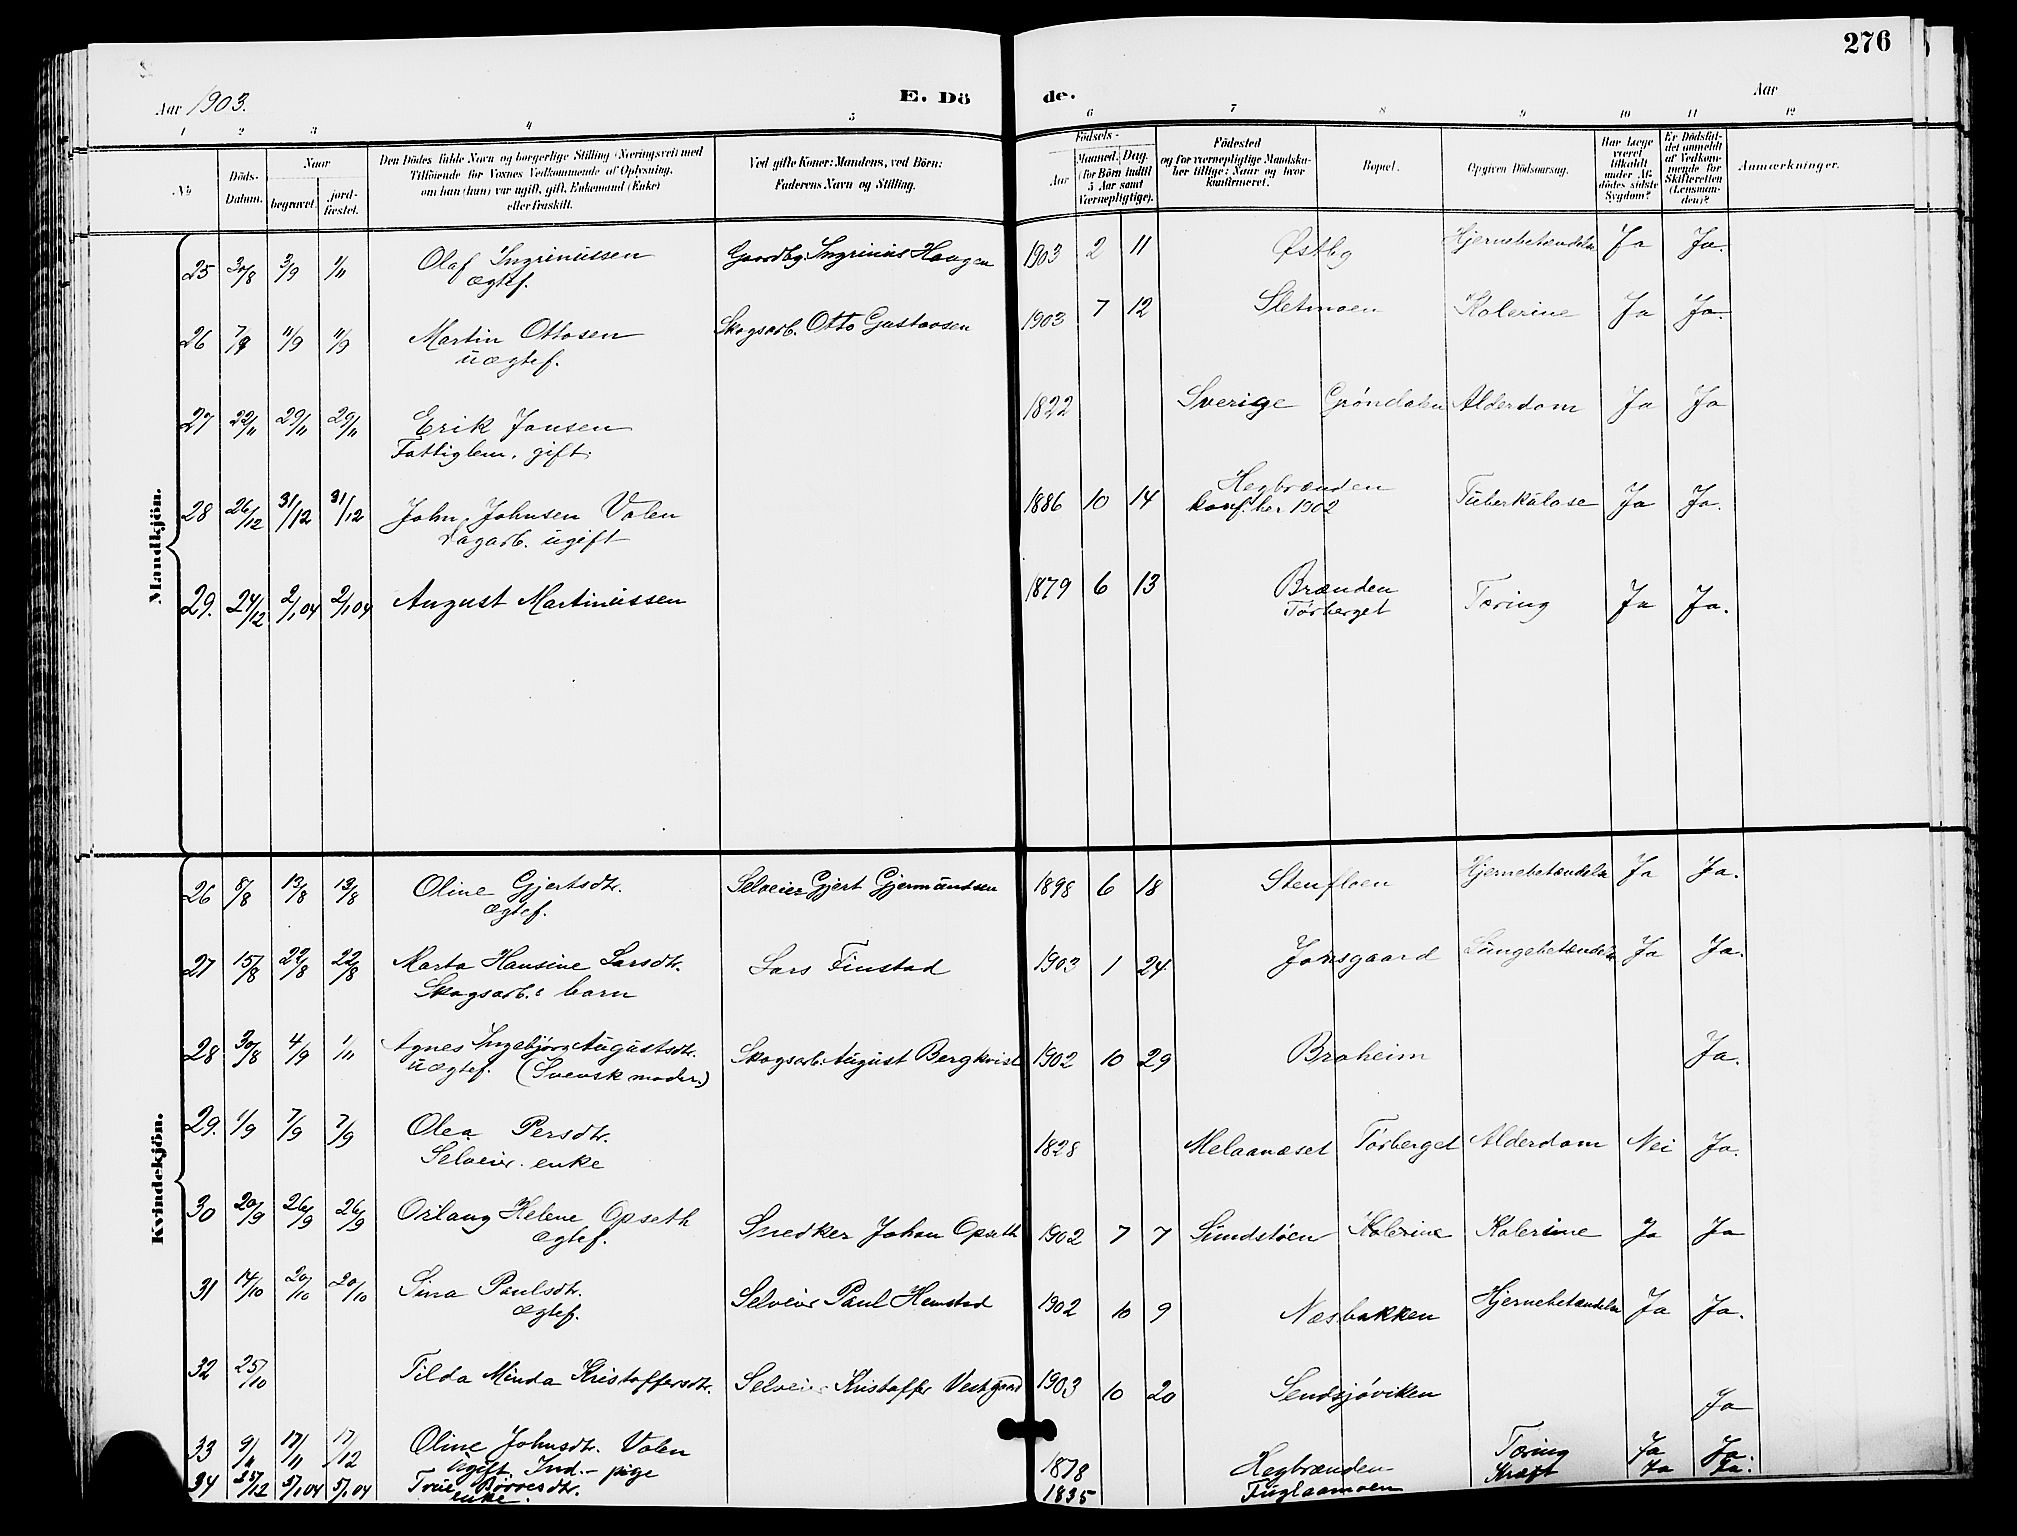 276
Aar 1903.
E. Dö
de.
Aar
1 2 3 4 5 6 7 8 9 10 11 12
No
Döds-Datum.
Naar
begravet.
jord-fæstet.
Den Dödes fulde Navn og borgerlige Stilling (Næringsvei) med
Tilföiende for Voxnes Vedkommende af Oplysning,
om han (hun) var ugift, gift, Enkemand (Enke)
eller fraskilt.
Ved gifte Koner: Mandens, ved Börn:
Faderens Navn og Stilling.
Födsels-
Aar
Maaned. Dag.
(for Börn indtil
5 Aar samt
Værnepligtige).
Födested
og for værnepligtige Mandska-
ber tillige: Naar og hvor
konfirmeret.
Bopæl.
Opgiven Dödsaarsag.
Har Læge
været
tilkaldt
under Af-
dödes sidste
Sygdom?
Er Dödsfal-
det anmeldt
af Vedkom-
mende for
Skifteretten
(Lensman-
den)?
Anmærkninger.
Mandkjön.
25 30/8 3/9 1/11 Olaf Ingrinussen Gaardbg. Ingrinus Haugen 1903 2 11 Østby Hjernebetændelse Ja Ja.
ægtef.
26 7/9 11/9 11/9 Martin Ottosen Skogsarb. Otto Gustavsen 1903 7 12 Sletmoen Kolerine Ja Ja.
uægtef.
27 22/11 29/11 29/11 Erik Jansen 1822 Sverige Gröndalen Alderdom Ja Ja
Fattiglem, gift.
28 26/12 31/12 31/12 John Johnsen Valen 1886 10 14 Hegbrænden Tuberkulose Ja Ja.
Dagarb. ugift konf. her 1902
29. 24/12 2/1 04 2/1 04 August Martinussen 1879 6 13 Brænden Tæring Ja Ja.
Törberget
Kvindekjön.
26 8/8 13/8 13/8 Oline Gjertsdtr. Selveier Gjert Gjermundsen 1898 6 18 Stenfloen Hjernebetændelse Ja Ja.
ægtef.
27 15/8 22/8 22/8 Marta Hansine Larsdtr. Lars Finstad 1903 1 24 Jonsgaard Lungebetændelse Ja Ja.
Skogsarb.s barn
28 30/8 4/9 1/11 Agnes Ingebjörg Augustsdtr. Skogsarb. August Bergkvist 1902 10 29 Braheim Ja.
uægtef. (Svensk moder)
29. 1/9 7/9 7/9 Olea Persdtr. 1828 Melaanæset Törberget Alderdom Nei Ja.
Selveier enke
30 20/9 26/9 26/9 Aslaug Helene Opseth Snedker Johan Opseth 1902 7 7 Sundstöen Kolerine Kolerine Ja Ja
ægtef.
31 14/10 20/10 20/10 Sina Paulsdtr. Selveier Paul Hemstad 1902 10 9 Næsbakken Hjernebetændelse Ja Ja.
ægtef.
32 25/10 Tilda Minda Kristoffersdtr. Selveier Kristoffer Vestgaard 1903 10 20 Sendsjöviken Ja
33 9/11 17/11 17/12 Oline Johnsdtr. Valen 1878 Hegbrænden Tæring Ja Ja.
Ugift. Ind.- pige
34 25/12 5/1 04 5/1 04 Börresdtr. 1835 Fuglaamoen Kræft Ja Ja.
enke.